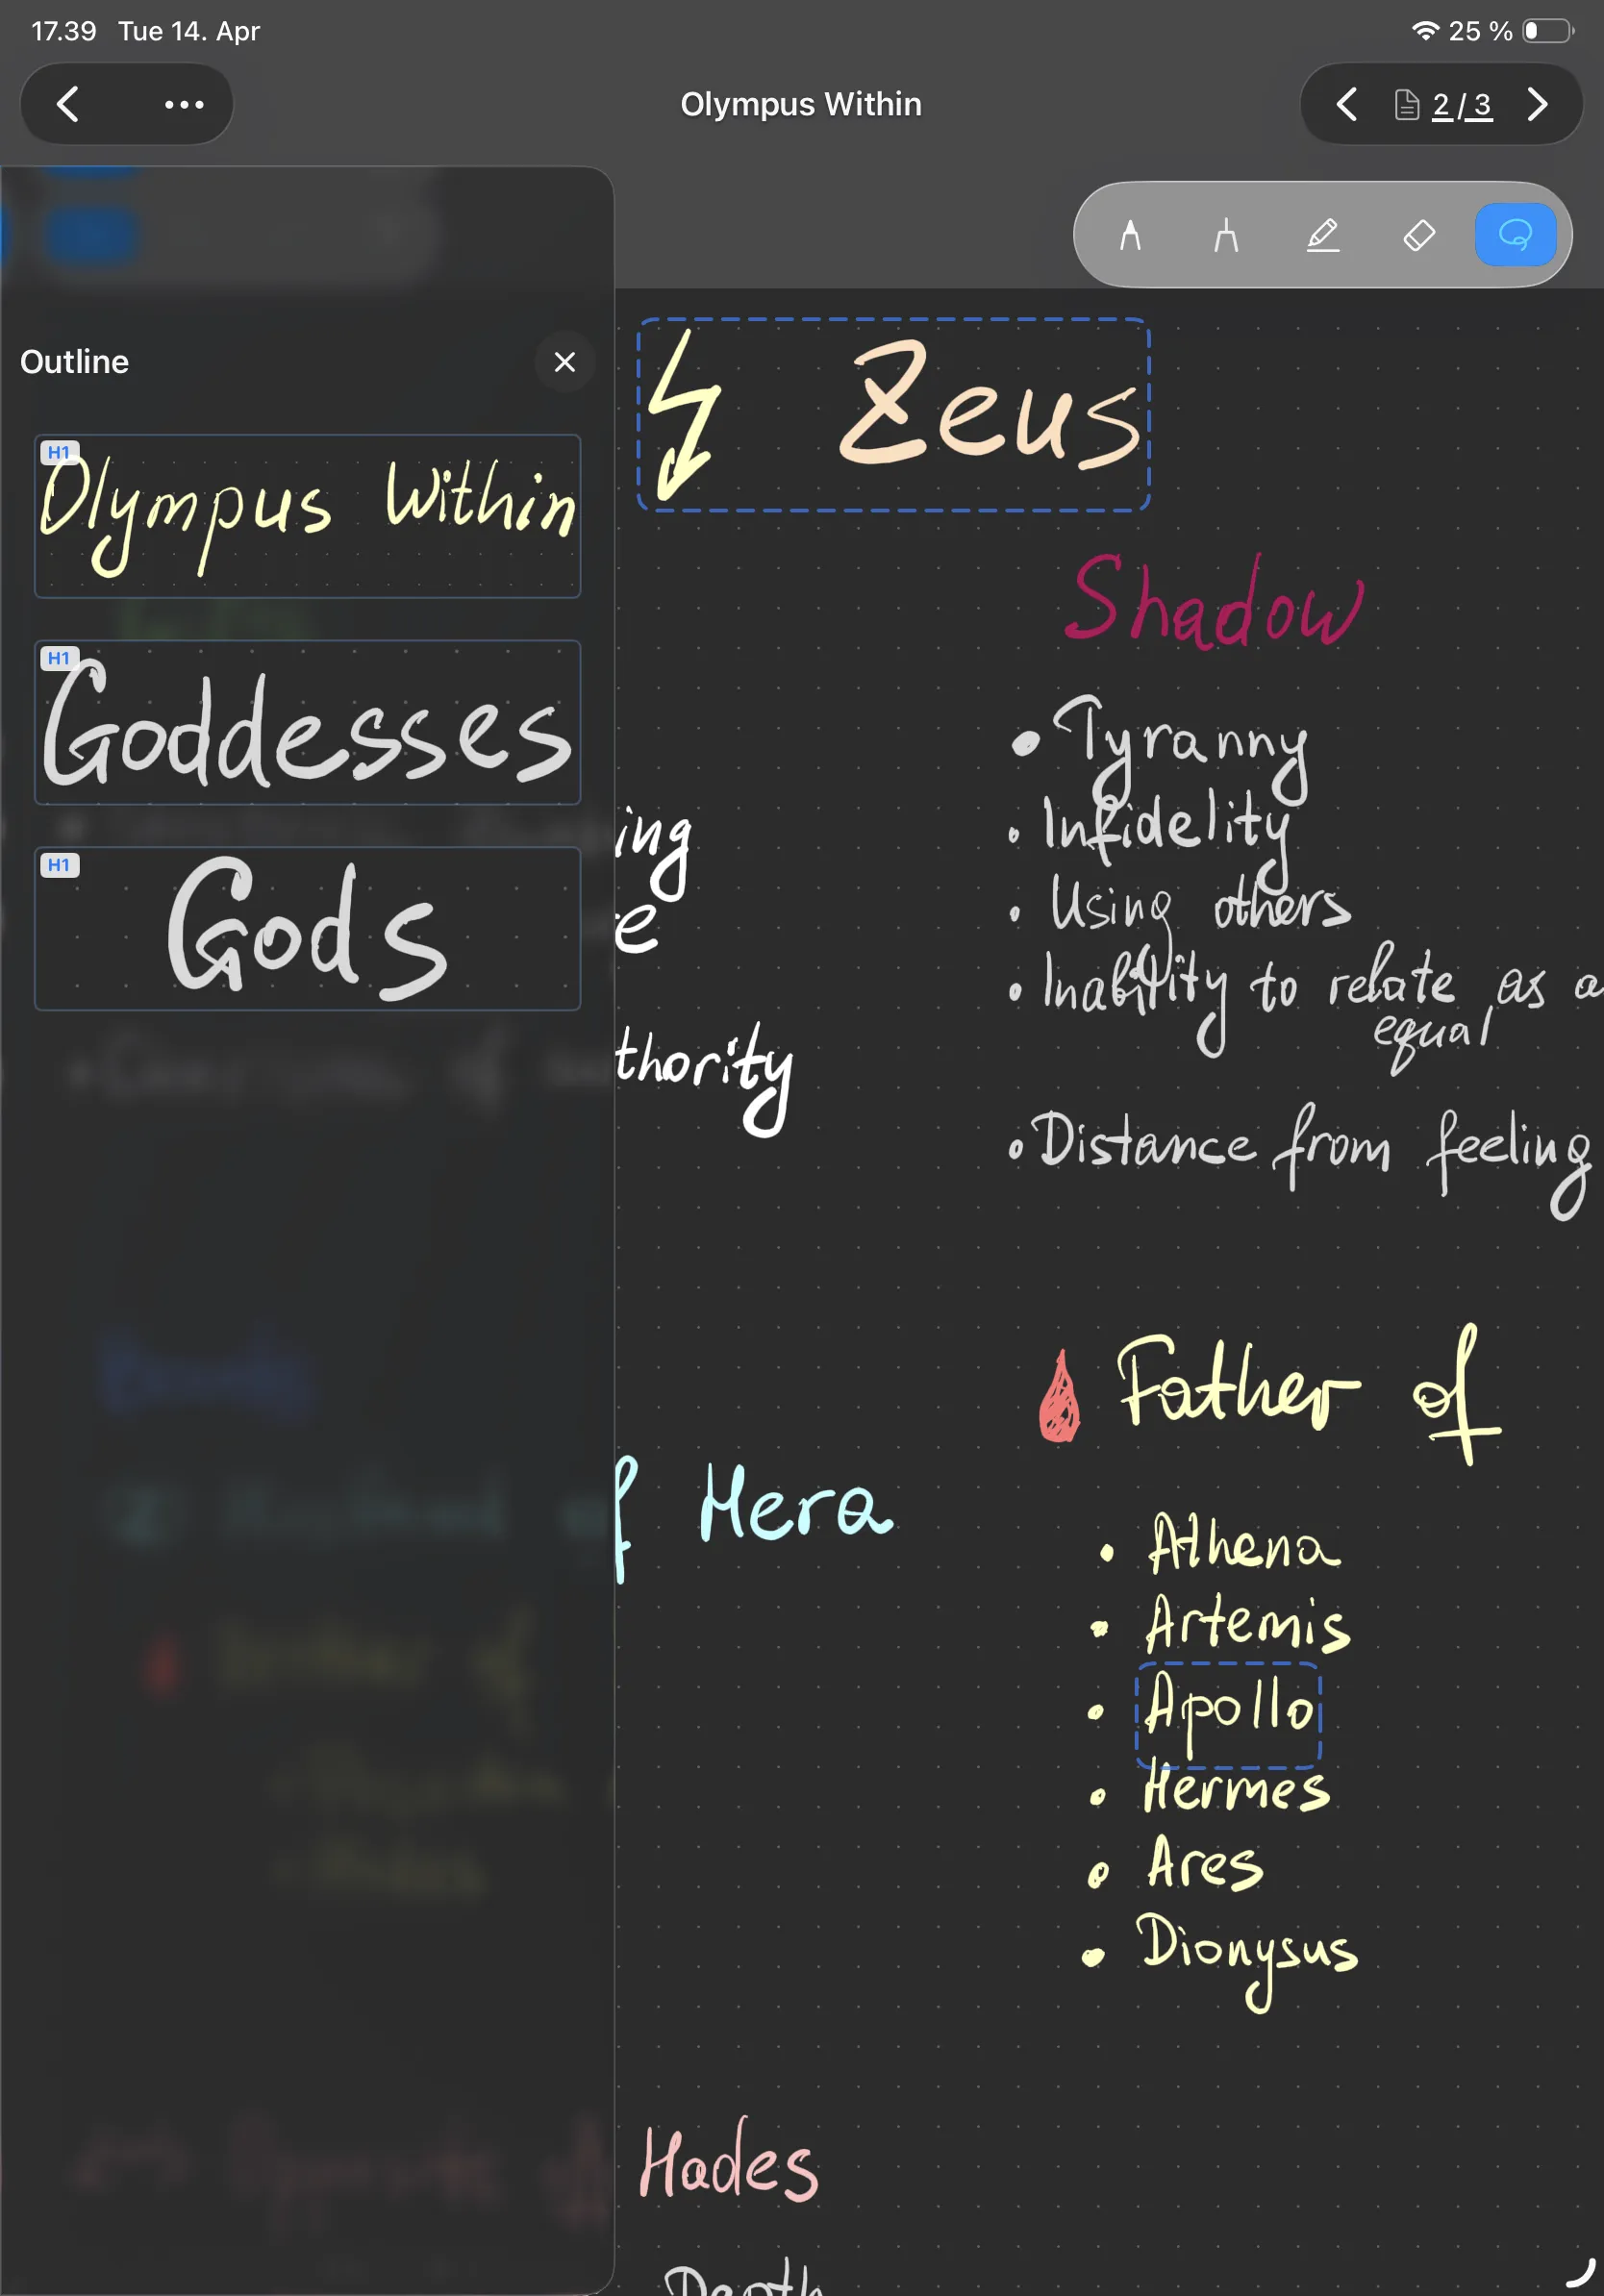 17.39 Tue 14. Apr
25 %
Olympus Within
2/3
Outline
H1
Olympus Within
H1
Goddesses
H1
Gods
Zeus
Shadow
• Tyranny
• Infidelity
• Using others
• Inability to relate as a
equal
• Distance from feeling
ing
e
thority
Father of
f Hera
• Athena
• Artemis
• Apollo
• Hermes
• Ares
• Dionysus
Hades
Depth